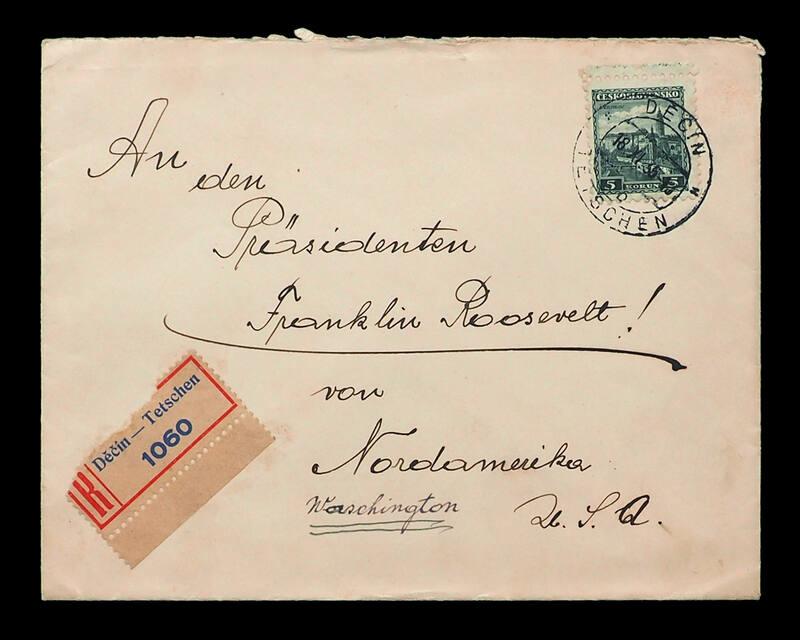 ČESKOSLOVENSKO
5 KORUN 5
DĚČÍN
TETSCHEN
An
den
Präsidenten
Franklin Roosevelt!
von
Nordamerika
Waschington
U. S. A.
Děčín — Tetschen
1060
R